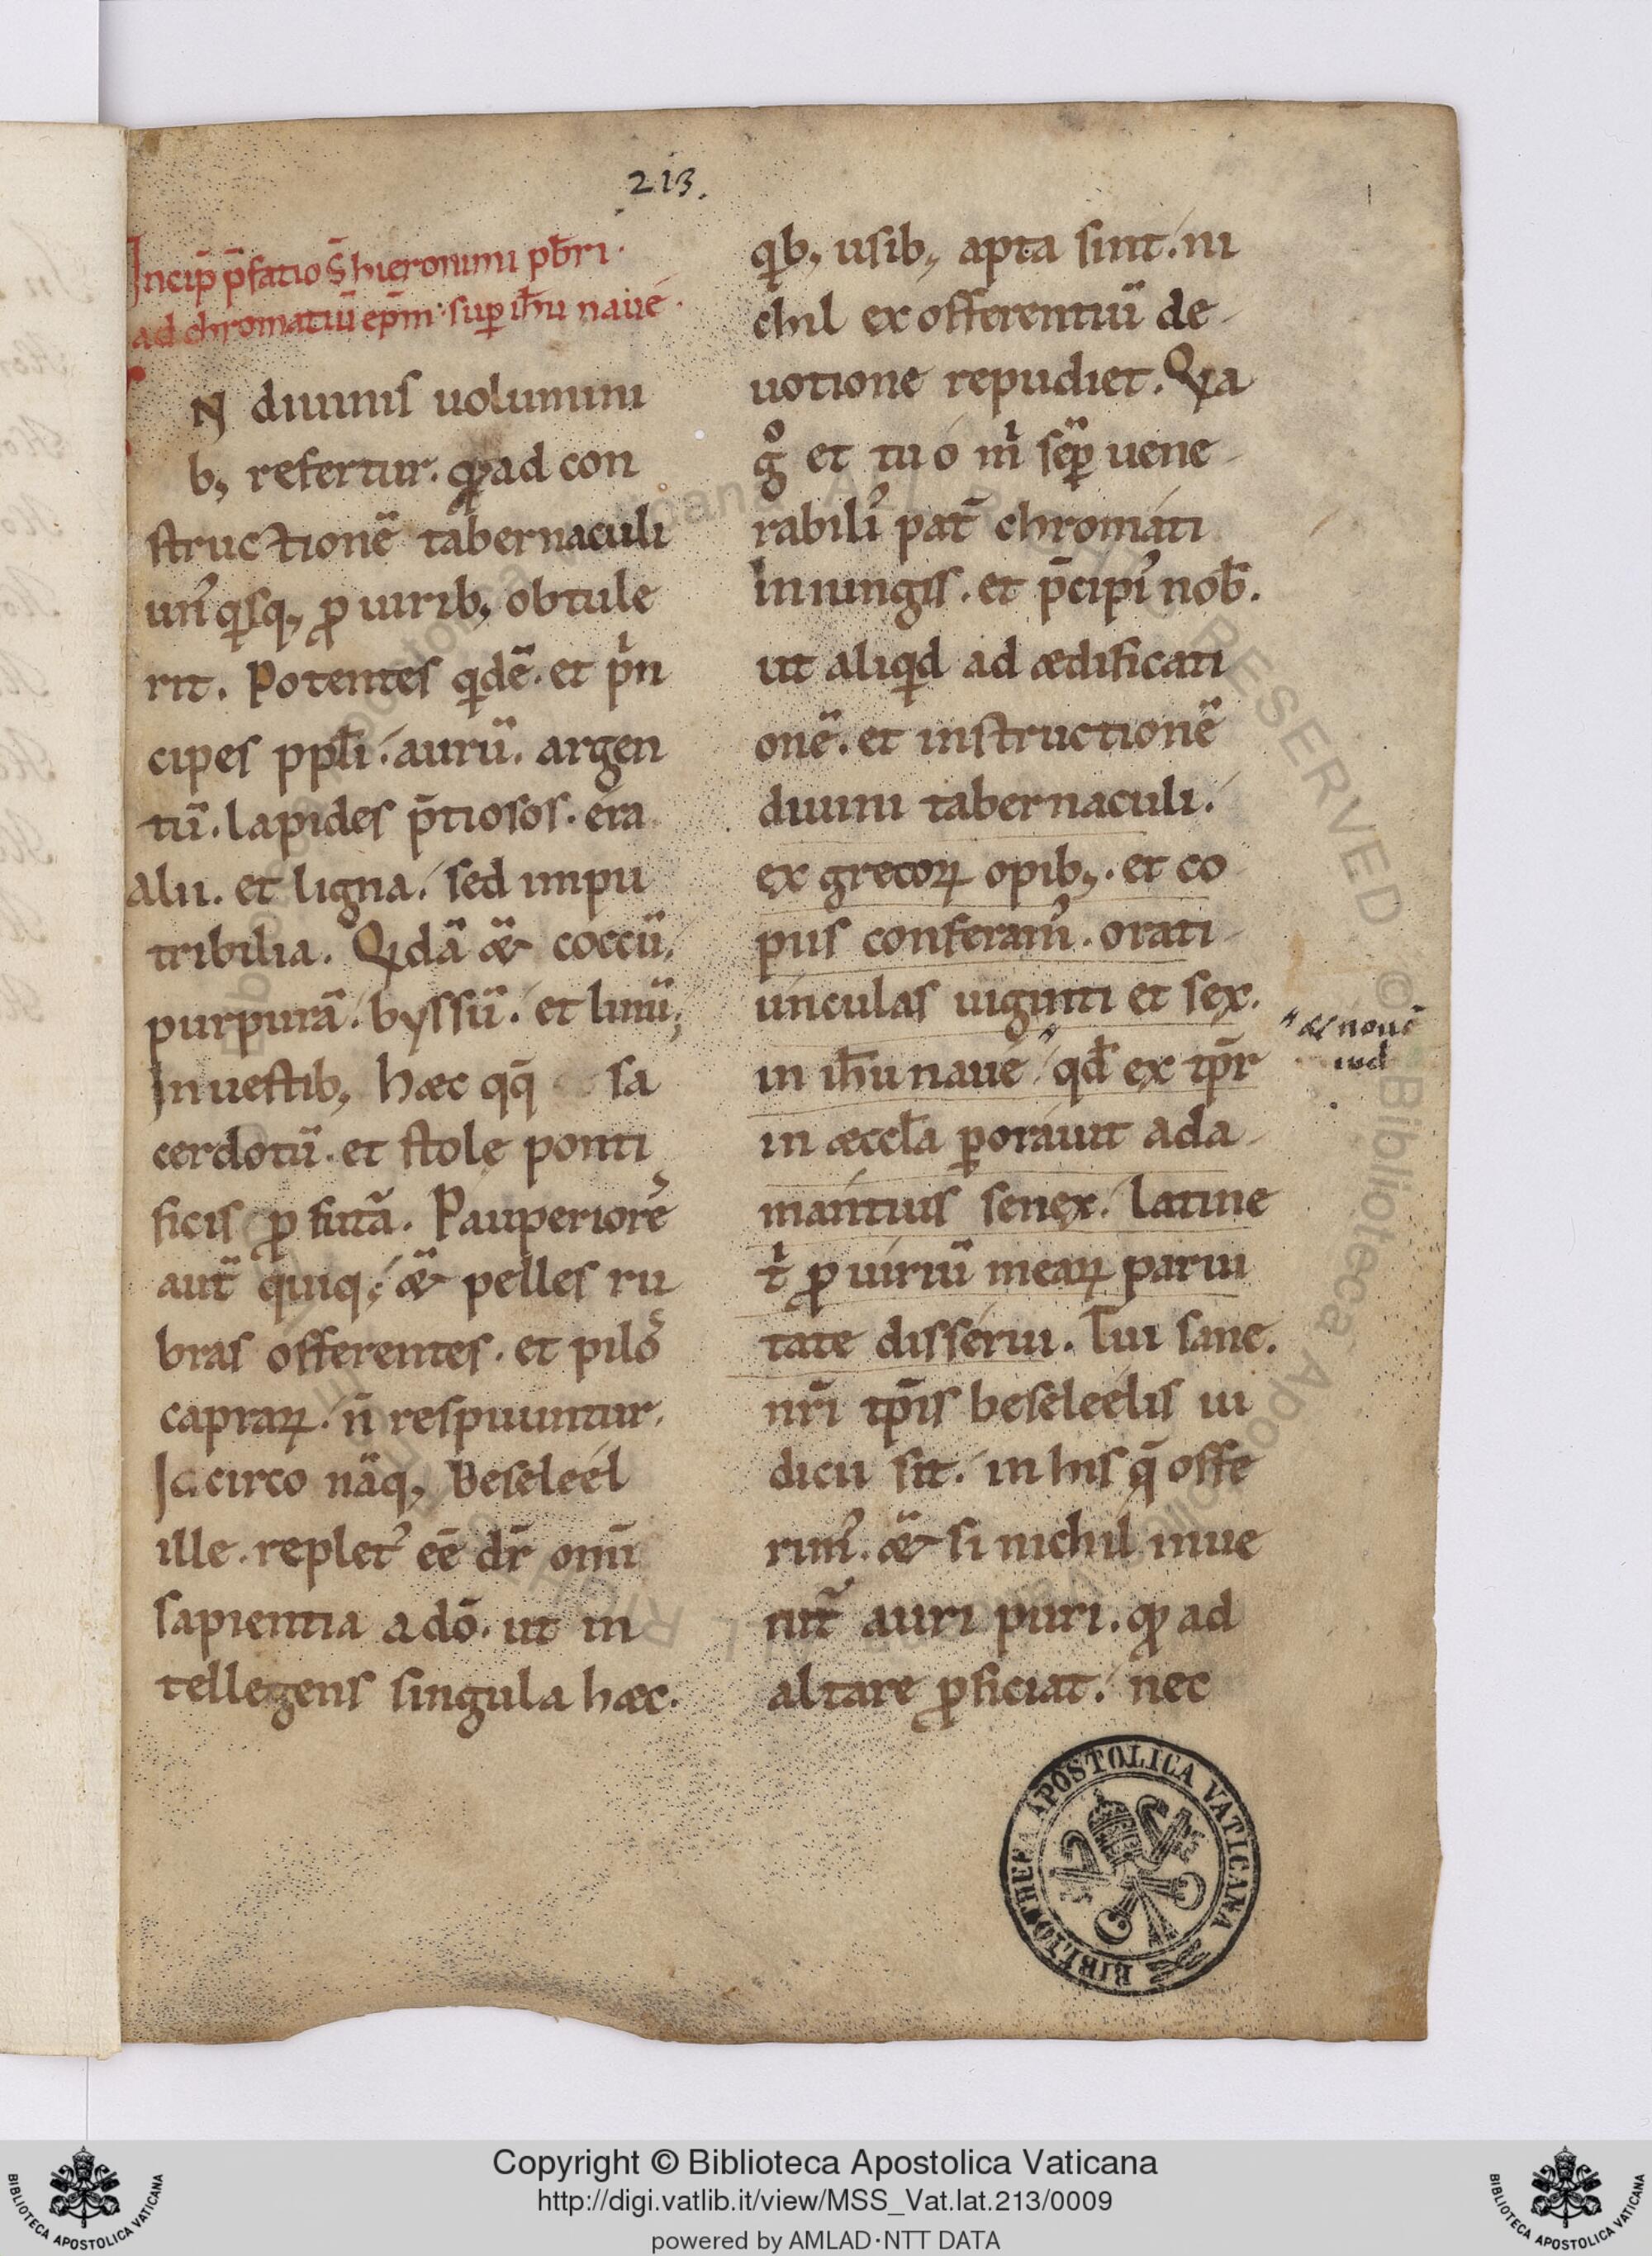 213.
Incip̄ p̄fatio S̄ hieronimi pb̄ri.
ad chromatiū ep̄m. sup̱ ih̄u naue.
IN diuinis uolumini
b; refertur. qđ ad con
structionē tabernaculi
unꝰ qͥsq; ꝓ uirib; obtule
rit. Potentes qͥdē. et pͥn
cipes ppl̄i. aurū. argen
tū. lapides p̄tiosos. era
alii. et ligna. sed impu
tribilia. Qͥdā æ̃ coccū,
purpurā. byssū. et linū;
In uestib; hæc qq̄ sa
cerdotū. et stolę ponti
ficis ꝓfutā. Pauperiorēs
aut̄ quiq; æ̃ pelles ru
bras offerentes. et pilos
capraꝝ. n̄ respuuntur.
Idcirco nāq; Beseleél
ille. repletꝰ eē dr̄ omī
sapientia a dō. ut in
tellegens singula hæc.
qͥb; usib; apta sint. ni
chil ex offerentiū de
uotione repudiet. Qͣa
gͦ et tu ó mͥ sēp̱ uene
rabiliꝰ pat̄ chromáti
inungis. et p̄cipiꝰ nob̄.
ut aliqͥd ad ædificati
onē. et instructionē
diuini tabernaculi.
ex grecoꝝ opib;. et co
piis conferamꝰ. orati
únculas uiginti et sex.
in ih̄u naue qđ ex tp̄r
in æccl̄a p̱oráuit ada
mántius senex. latine
tͥ ꝓ uíriū meaꝝ parui
tate dissérui. Tui sane.
nr̄i tp̄is beséleélis iu
dicii sit. in his q̄ offe
rimꝰ. æ̃ si nichil inue
nit̄ auri puri. qđ ad
altare ꝓficiat. nec
BIBLIOTHECA APOSTOLICA VATICANA
Copyright © Biblioteca Apostolica Vaticana
http://digi.vatlib.it/view/MSS_Vat.lat.213/0009
powered by AMLAD·NTT DATA
BIBLIOTECA APOSTOLICA VATICANA
BIBLIOTECA APOSTOLICA VATICANA